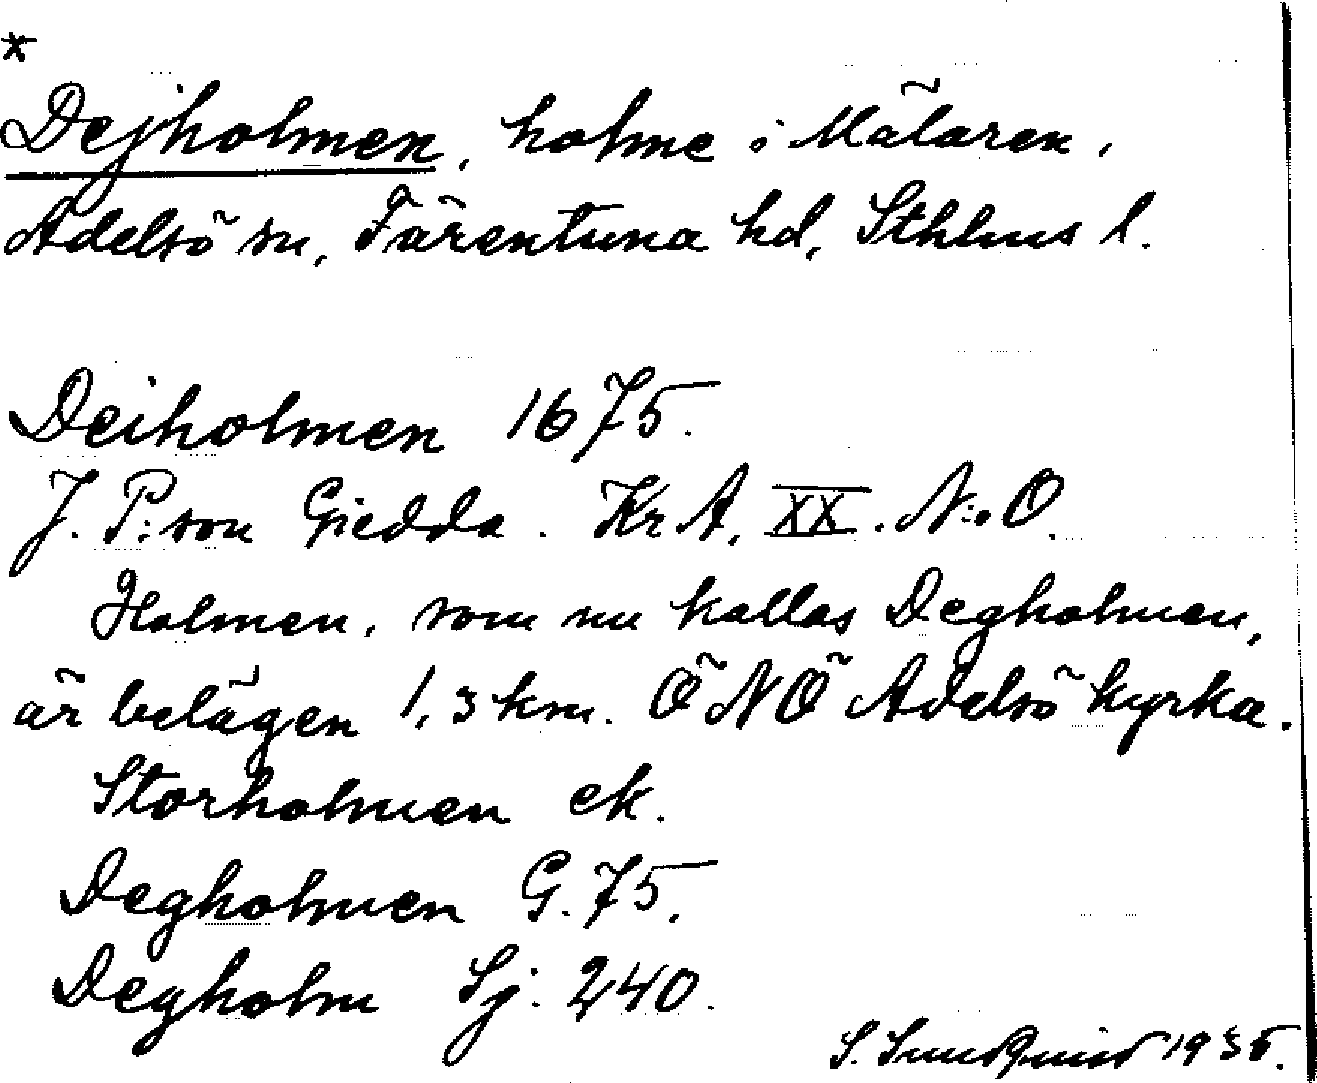 *
Dejholmen, holme i Mälaren,
Adelsö sn, Färentuna hd, Sthlms l.
Deiholmen 1675.
J. P:son Giedda. Kr A, XX. N:o O.
Holmen, som nu kallas Degholmen,
är belägen 1,3 km. ÖNÖ Adelsö kyrka.
Storholmen ek.
Degholmen G. 75.
Degholm Sj. 240.
S. Sundqvist 1935.